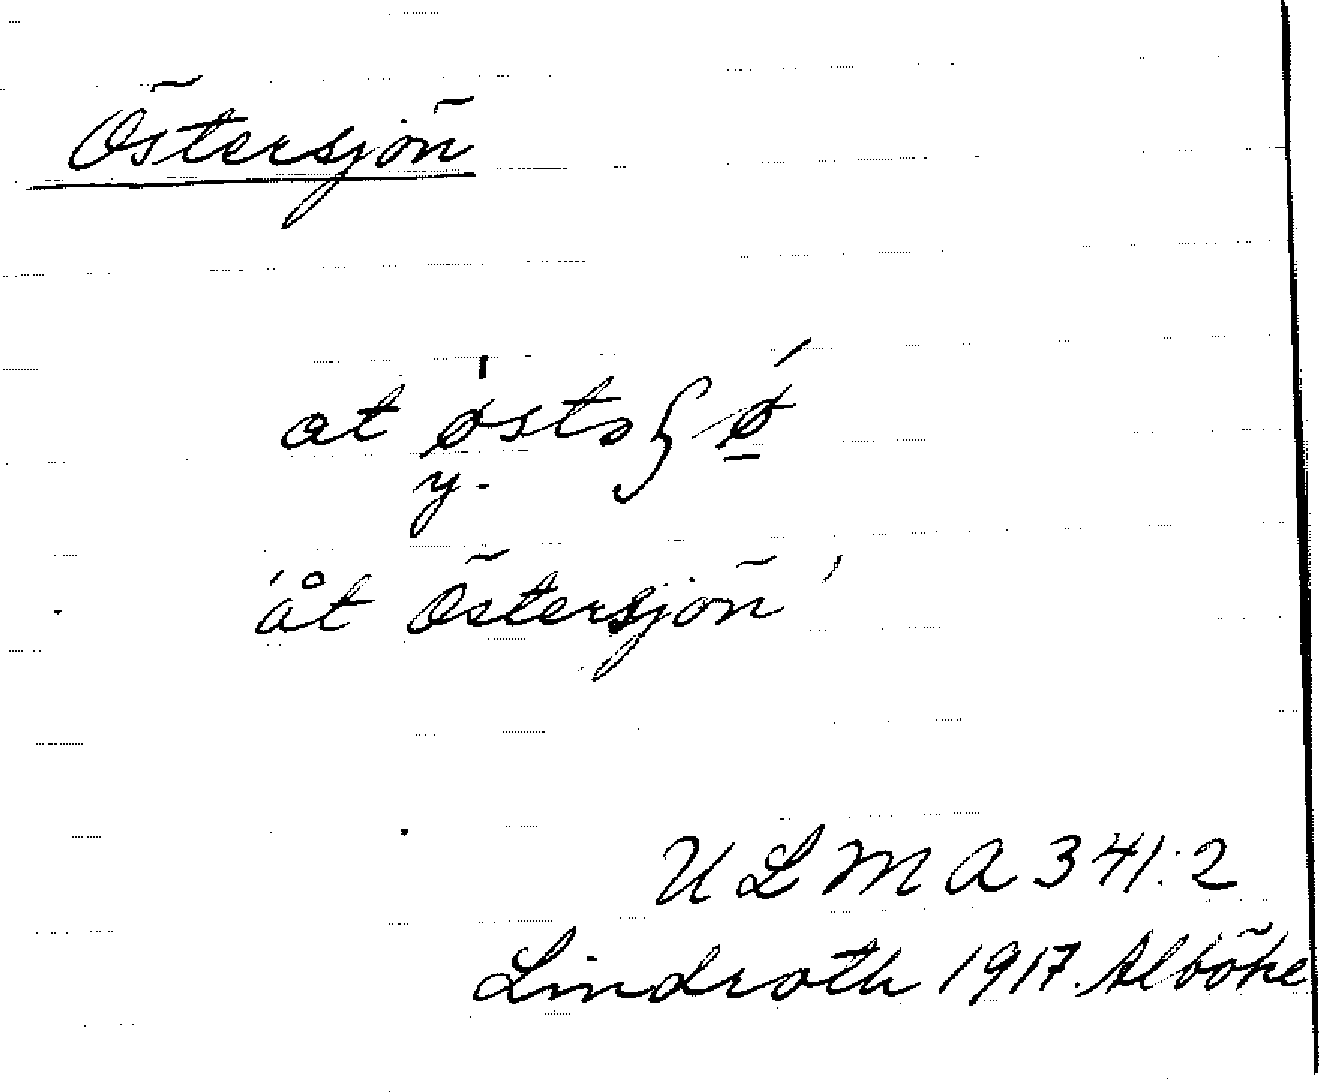 Östersjön
at
y.
'åt Östersjön'
ULMA 341:2
Lindroth 1917. Alböke